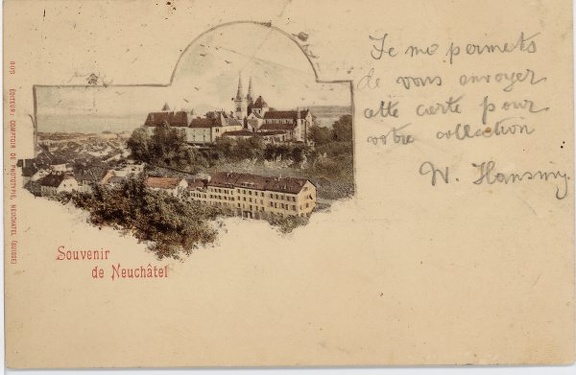 Je me permets
de vous envoyer
cette carte pour
votre collection
W. Hansmy
Souvenir
de Neuchâtel
309 ÉDITEUR: COMPTOIR DE PHOTOTYPIE, NEUCHATEL (SUISSE)